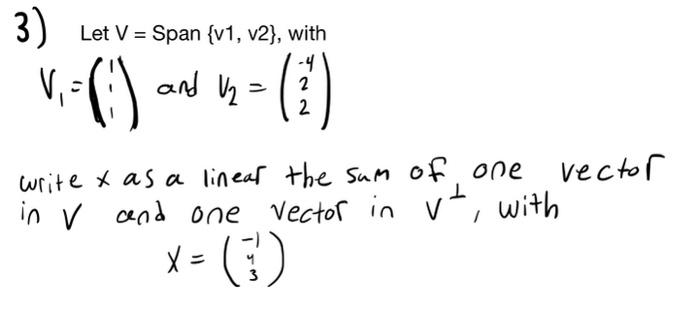 3) Let V = Span {v1, v2}, with
V₁ = (1 1 1) and V₂ = (-4 2 2)
write x as a linear the sum of one vector
in V and one vector in V⊥, with
X = (-1 4 3)